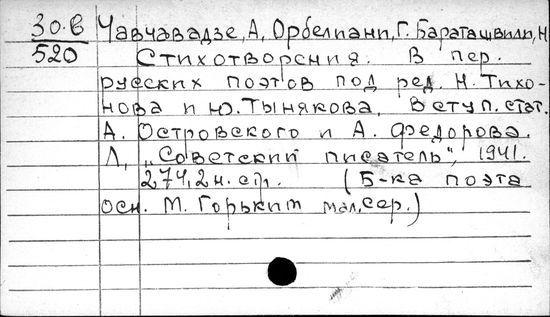 30.В Чавчавадзе, А, Орбелиани, Г. Бараташвили, Н
520 Стихотворения. В пер.
русских поэтов под ред. Н. Тихо-
нова и Ю. Тынякова. Вступ. стат.
А. Островского и А. Федорова.
Л, "Советский писатель", 1941.
274,2н. стр. (Б-ка поэта
осн. М. Горьким мал. сер.)